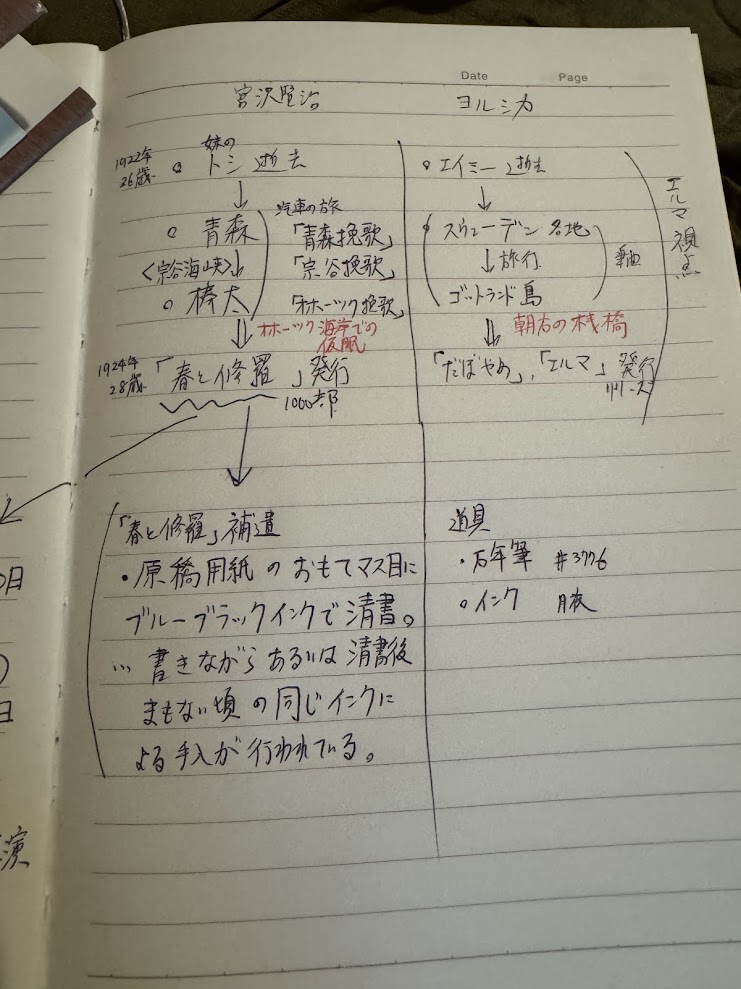 Date Page
宮沢賢治
1922年
26歳
妹の
トシ 逝去
青森
<宗谷海峡>
樺太
汽車の旅
「青森挽歌」
「宗谷挽歌」
「オホーツク挽歌」
オホーツク海岸での
仮眠
1924年
28歳
「春と修羅」発行
1000部
「春と修羅」補遺
・原稿用紙のおもてマス目に
ブルーブラックインクで清書。
… 書きながらあるいは清書後
まもない頃の同じインクに
よる手入が行われている。
ヨルシカ
エイミー 逝去
スウェーデン 各地
旅行
ゴットランド島
朝方の桟橋
「だぼやめ」,「エルマ」発行
リリース
エルマ視点
道具
・万年筆 #3776
インク 月夜
日
日
演